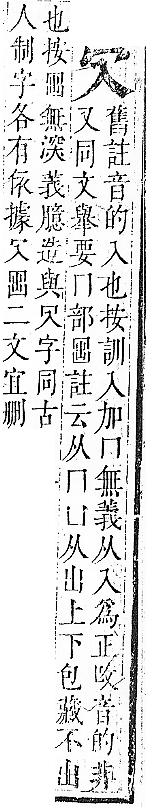 舊註音的入也按訓入加冂無義从入為正改音的非
又同文舉要冂部註云从冂凵从出上下包藏不出
也按無深義臆造與字同古
人制字各有依據二文宜刪